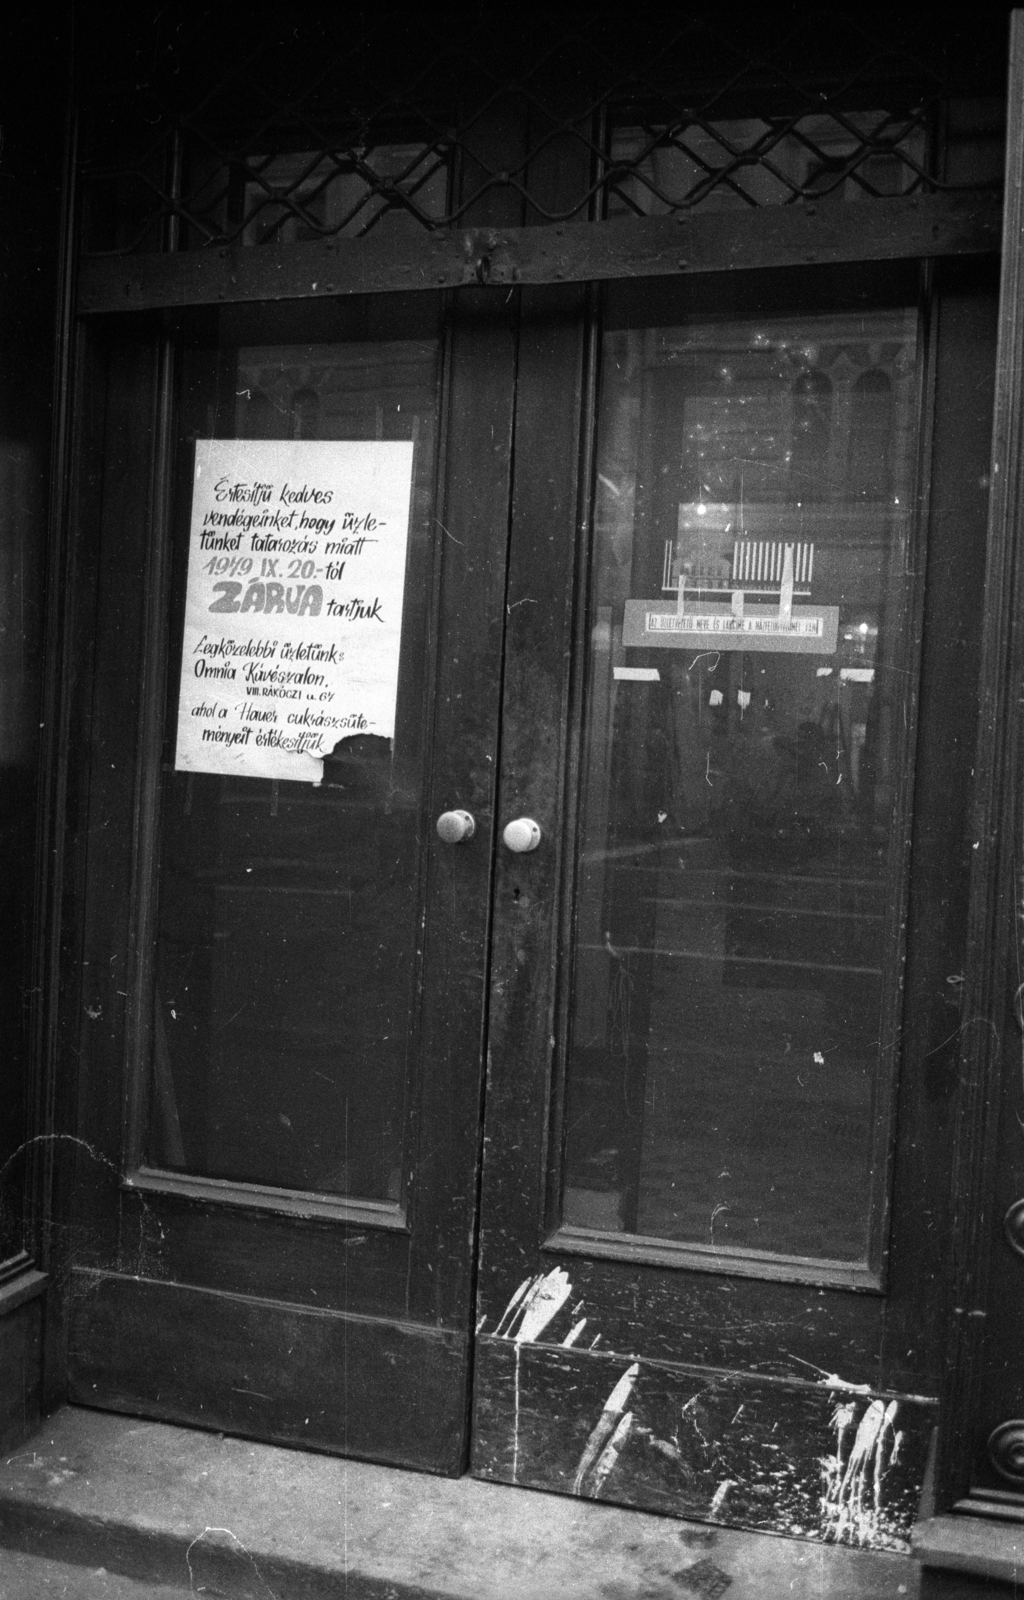 Értesítjü kedves
vendégeinket, hogy üzle-
tünket tatarozás miatt
1979 IX. 20.-tól
ZÁRVA tartjuk
Legközelebbi üzletünk:
Omnia Kávészalon,
VIII. RÁKÓCZI u. 67
ahol a Hauer cukrászsüte-
ményeit értékesítjük
AZ ÜZLETVEZETŐ NEVE ÉS LAKCÍME A HÁZFELÜGYELŐNÉL VAN